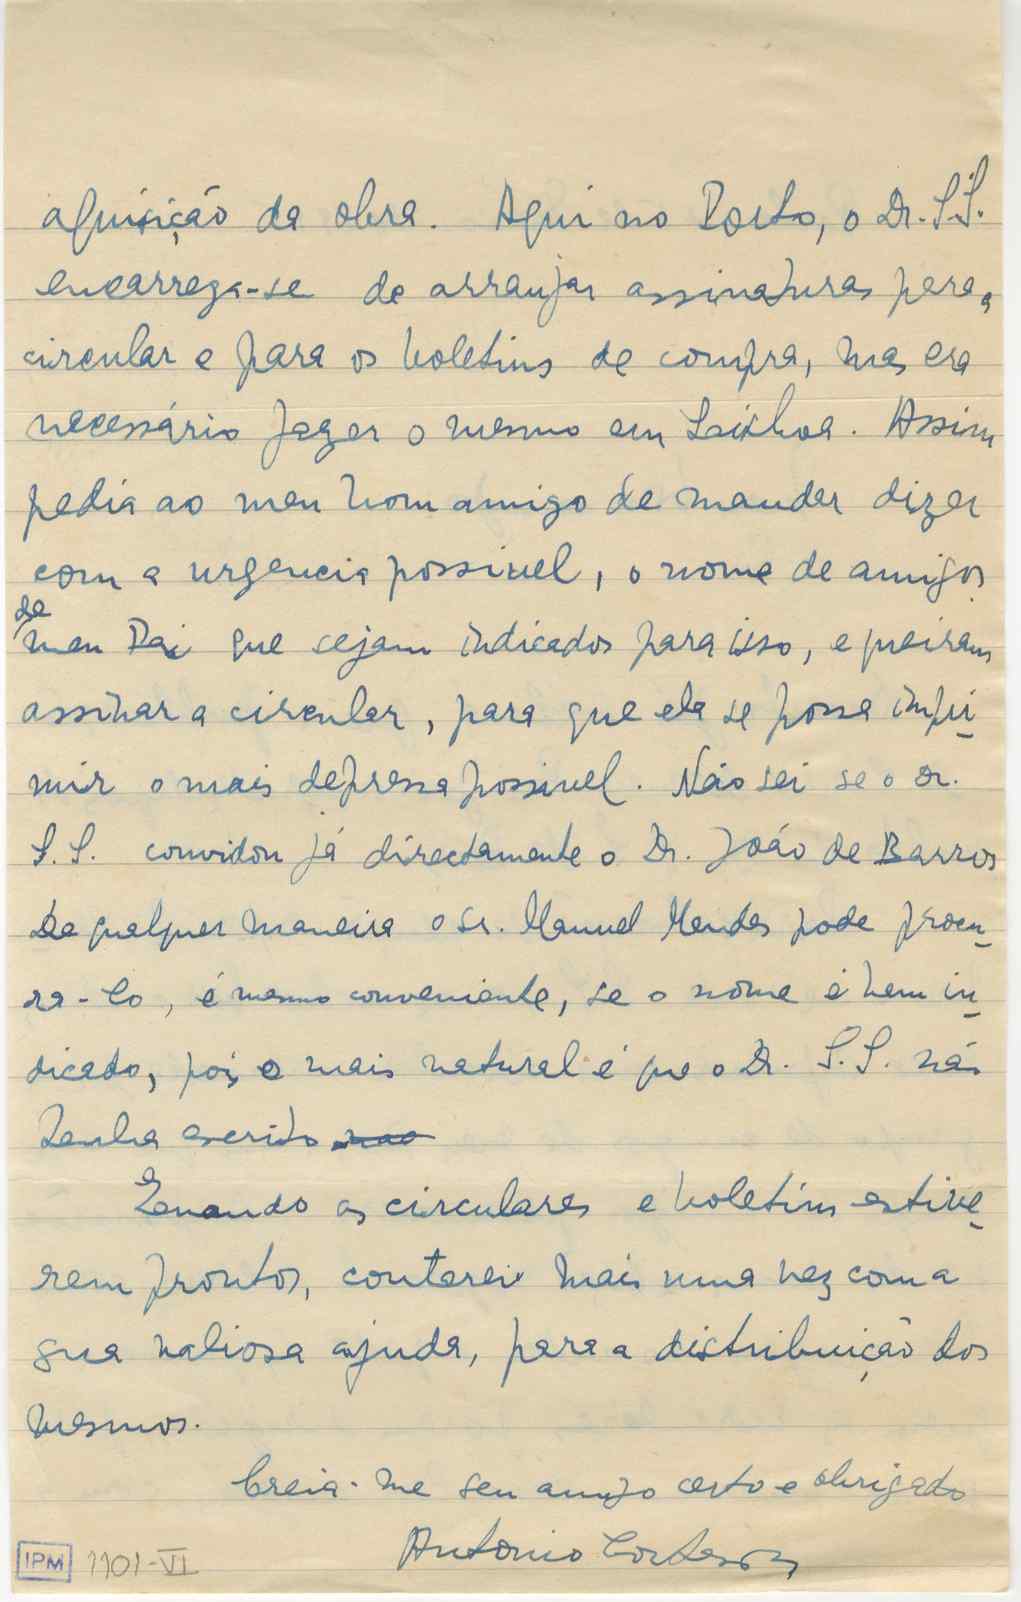 aquisição da obra. Aqui no Porto, o Dr. S.S.
encarrega-se de arranjar assinaturas para a
circular e para os boletins de compra, mas era
necessário fazer o mesmo em Lisboa. Assim
pedia ao meu bom amigo de mandar dizer
com a urgencia possivel, o nome de amigos
de
meu Pai que sejam indicados para isso, e queiram
assinar a circular, para que ela se possa impri-
mir o mais depressa possivel. Não sei se o Dr.
S.S. convidou já directamente o Dr. João de Barros
De qualquer maneira o Sr. Manuel Mendes pode procu-
ra-lo, é mesmo conveniente, se o nome é bem in-
dicado, pois o mais natural é que o Dr. S.S. não
tenha escrito nao
Quando as circulares e boletins estive-
rem prontos, contarei mais uma vez com a
sua valiosa ajuda, para a distribuição dos
mesmos.
Creia-me seu amigo certo e obrigado
Antonio Cortesão
IPM 1101-VI